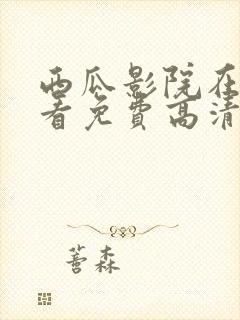 西瓜影院在
看免费高清
蕾森